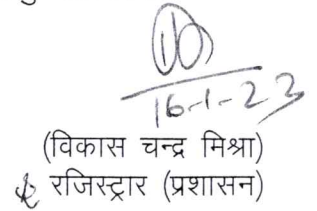 16-1-23
(विकास चन्द्र मिश्रा)
रजिस्ट्रार (प्रशासन)